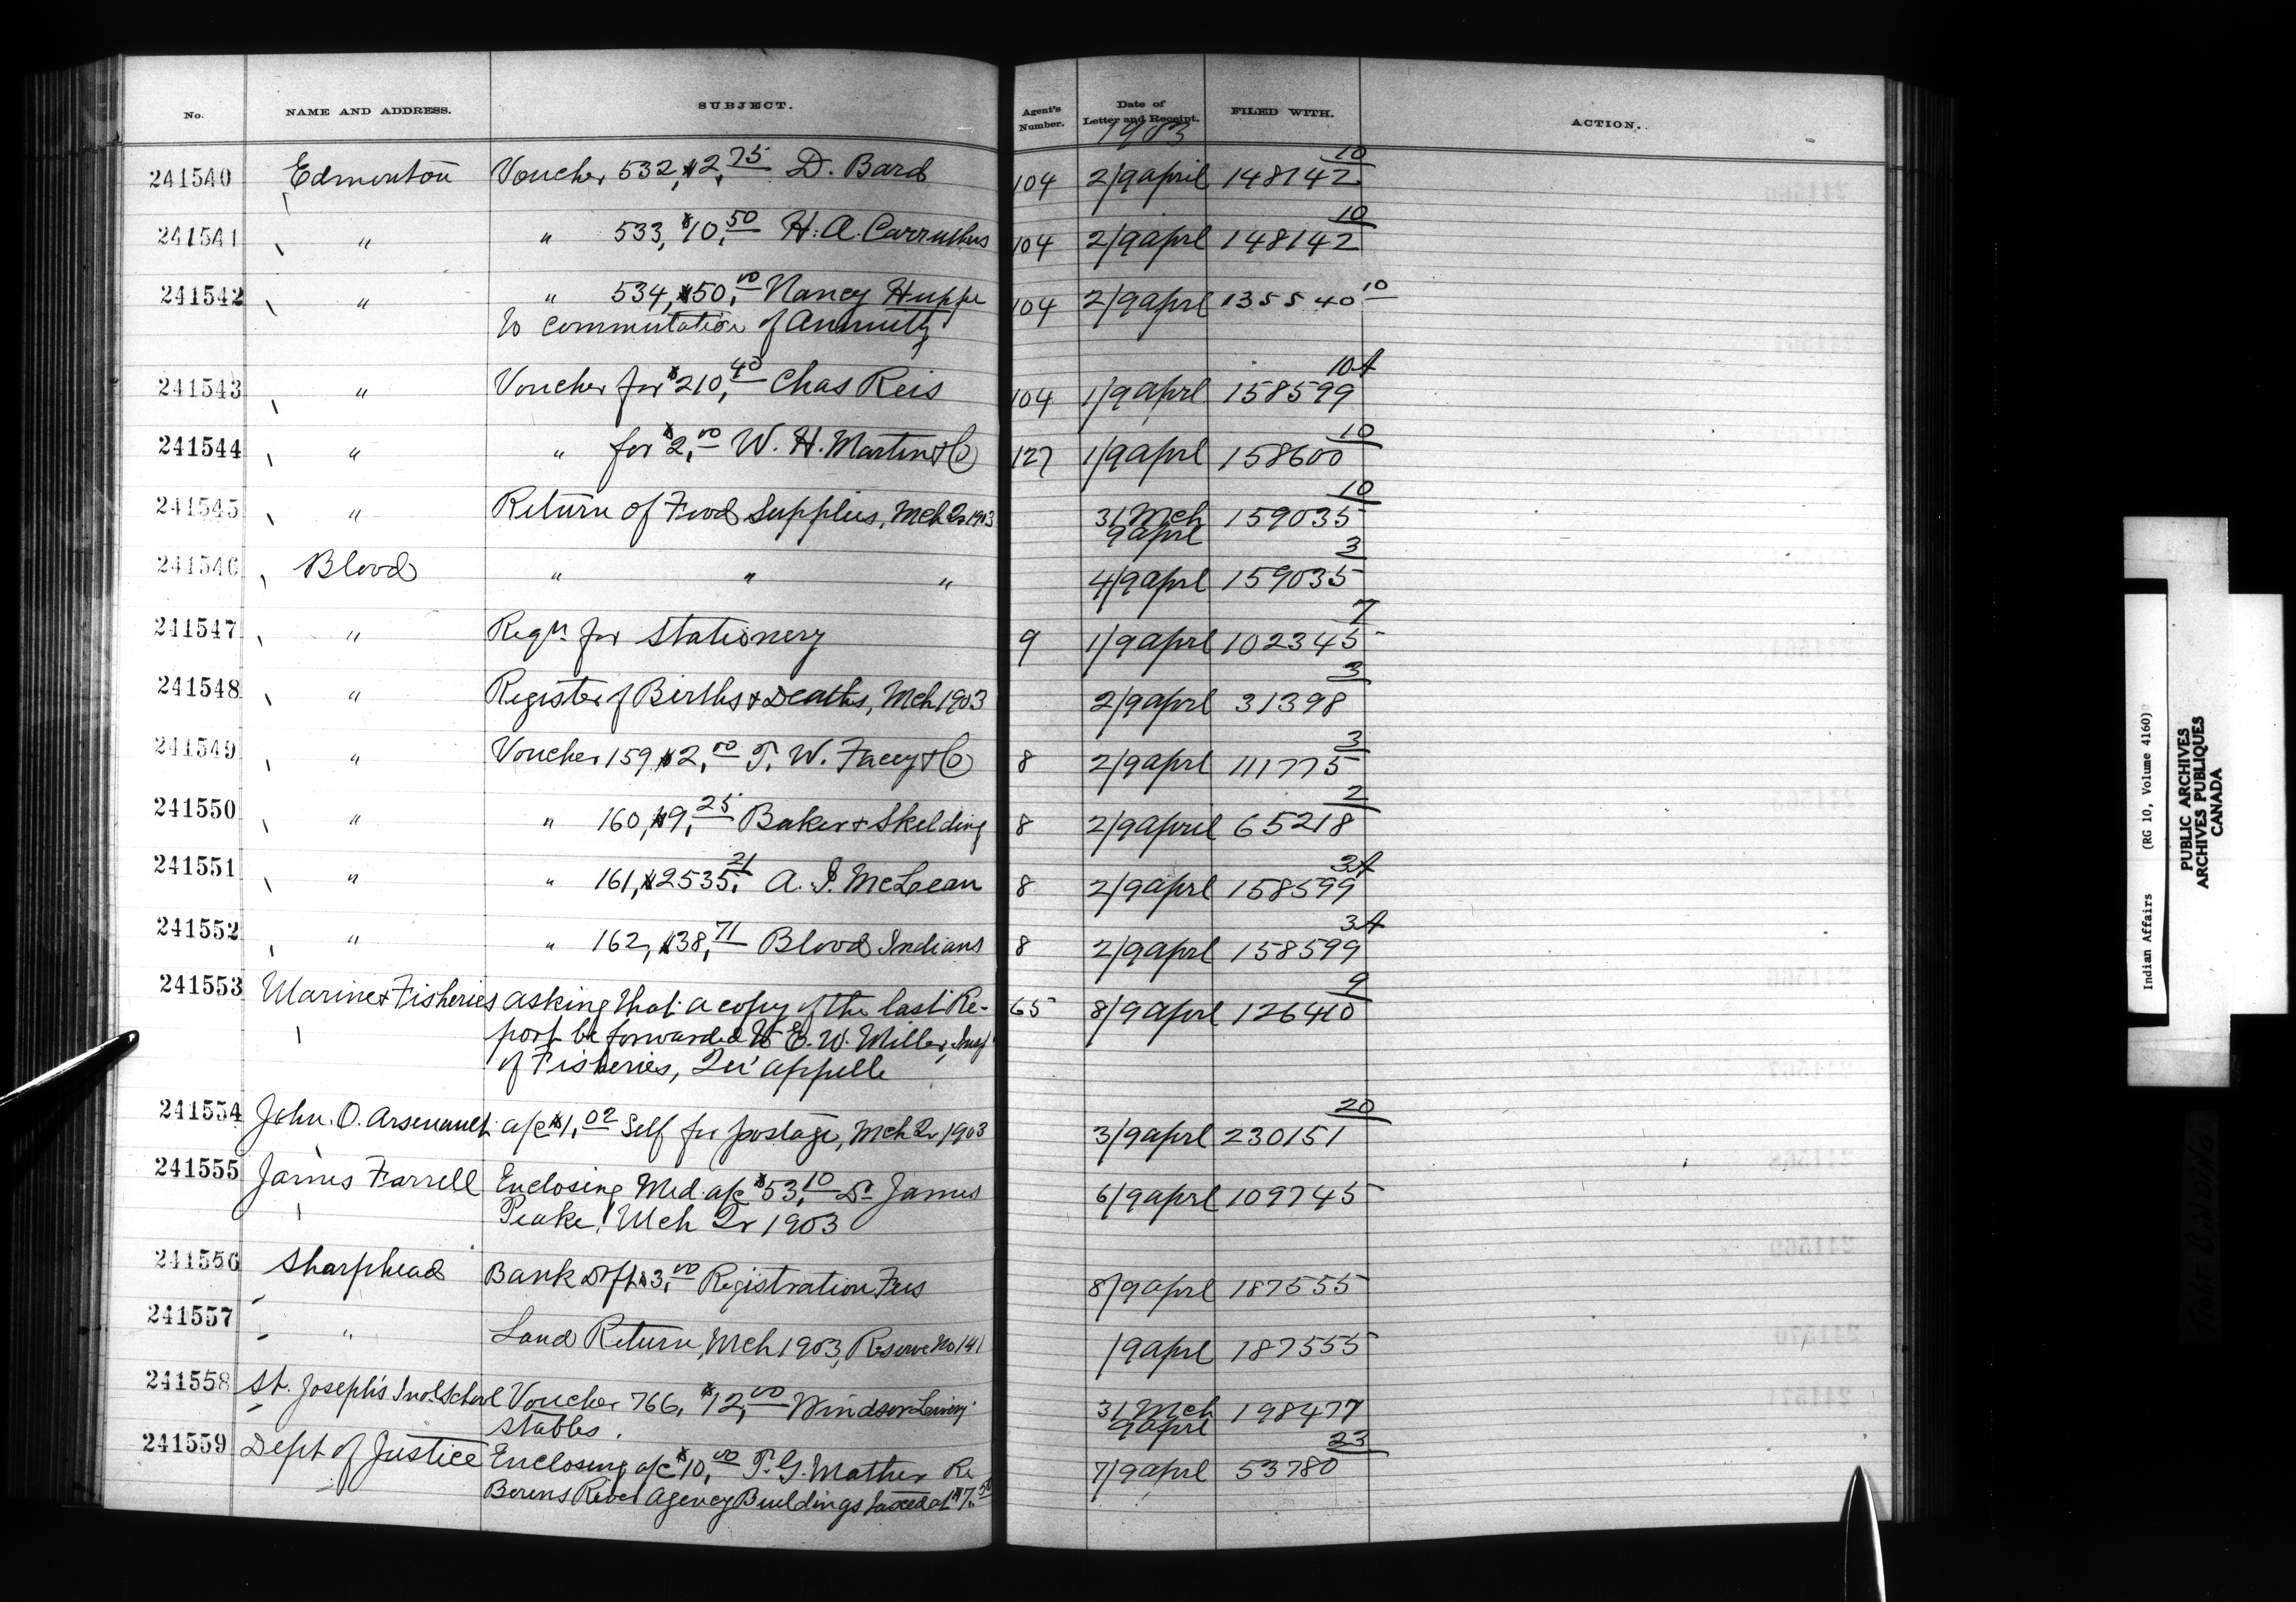 No. NAME AND ADDRESS. SUBJECT. Agent's Number. Date of Letter and Receipt. FILED WITH. ACTION.
1903
241540 Edmonton Voucher 532, $2,75 D. Bard 104 2/9 april 148142 10
241541 " " 533, $10,50 H. A. Carruthers 104 2/9 aprl 148142 10
241542 " " 534, $50,00 Nancy Huppe 104 2/9 aprl 135540 10
to commutation of Annuity
241543 " Voucher for $210,40 Chas Reis 104 1/9 aprl 158599 10A
241544 " " for $2,00 W. H. Martin & Co 127 1/9 aprl 158600 10
241545 " Return of Food Supplies, Mch Qr 1903 31 Mch 159035 10
9 aprl
241546 Blood " " " 4/9 aprl 159035 3
241547 " Reqn for Stationery 9 1/9 aprl 102345 7
241548 " Register of Births & Deaths, Mch 1903 2/9 aprl 31398 3
241549 " Voucher 159, $2,00 T. W. Facey & Co 8 2/9 aprl 111775 3
241550 " " 160, $9,25 Baker & Skelding 8 2/9 april 65218 2
241551 " " 161, $2535,21 A. J. McLean 8 2/9 aprl 158599 3A
241552 " " 162, $38,71 Blood Indians 8 2/9 aprl 158599 3A
241553 Marine & Fisheries asking that a copy of the last Re- 65 8/9 aprl 126410 9
port be forwarded to E. W. Miller, Insp
of Fisheries, Qu'appelle
241554 John. O. Arsenault a/c $1,02 Self for postage, Mch Qr 1903 3/9 aprl 230151 20
241555 James Farrell Enclosing Med. a/c $53,10 Dr James 6/9 aprl 109745
Peake, Mch Qr 1903
241556 Sharphead Bank Dft $3,00 Registration Fees 8/9 aprl 187555
241557 " Land Return, Mch 1903, Reserve No 141 /9 aprl 187555
241558 St. Joseph's Indl. School Voucher 766, $12,00 Windsor Livery 31 Mch 198477
Stables. 9 aprl
241559 Dept of Justice Enclosing a/c $10,00 T. G. Mather Re 7/9 aprl 53780 23
Berens River Agency Buildings taxed at $7.50
Indian Affairs (RG 10, Volume 4160)
PUBLIC ARCHIVES
ARCHIVES PUBLIQUES
CANADA